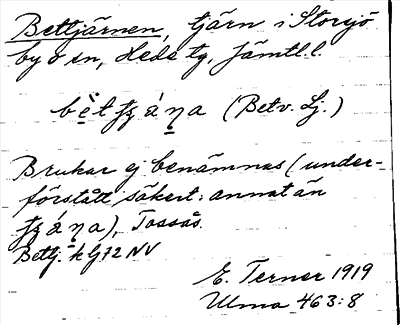 Bettjärnen, tjärn i Storsjö
by o sn, Hede tg, Jämtl. l.
(Betv. Lj.)
Brukar ej benämnas (under-
förstått säkert: annat än
), Tossås.
Bettj. k G 72 NV
E. Terner 1919
Ulma 463:8